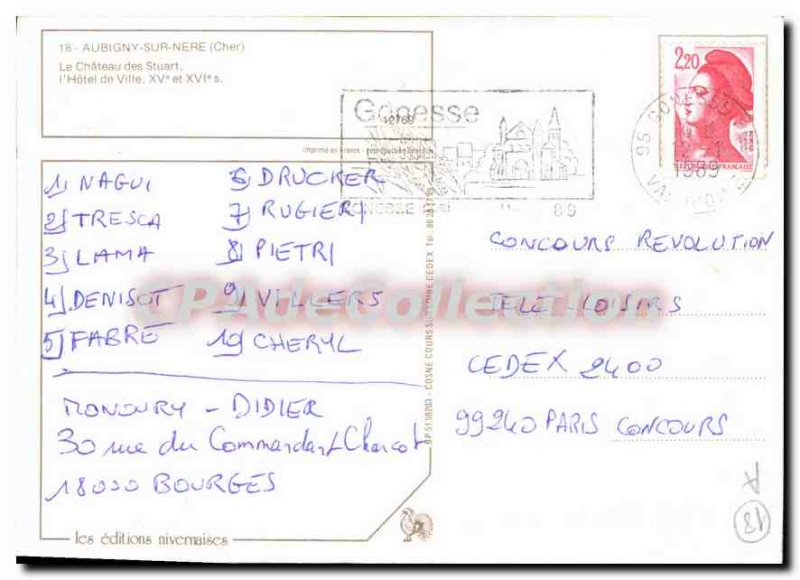 18 - AUBIGNY-SUR-NERE (Cher)
Le Château des Stuart,
l'Hôtel de Ville. XVe et XVIe s.
imprimé en France
1) NAGUI
2) TRESCA
3) LAMA
4) DENISOT
5) FABRE
6) DRUCKER
7) RUGIERI
8) PIETRI
9) VILLERS
10) CHERYL
MONOURY - DIDIER
30 rue du Commandant Charcot
18000 BOURGES
les éditions nivernaises
BP 51 58203 - COSNE COURS SUR LOIRE CEDEX Tél.
Gonesse
12769
89
2,20
95 GONESSE
1989
VAL D'OISE
CONCOURS REVOLUTION
TELE LOISIRS
CEDEX 2400
99240 PARIS CONCOURS
A
13
CPAdeCollection